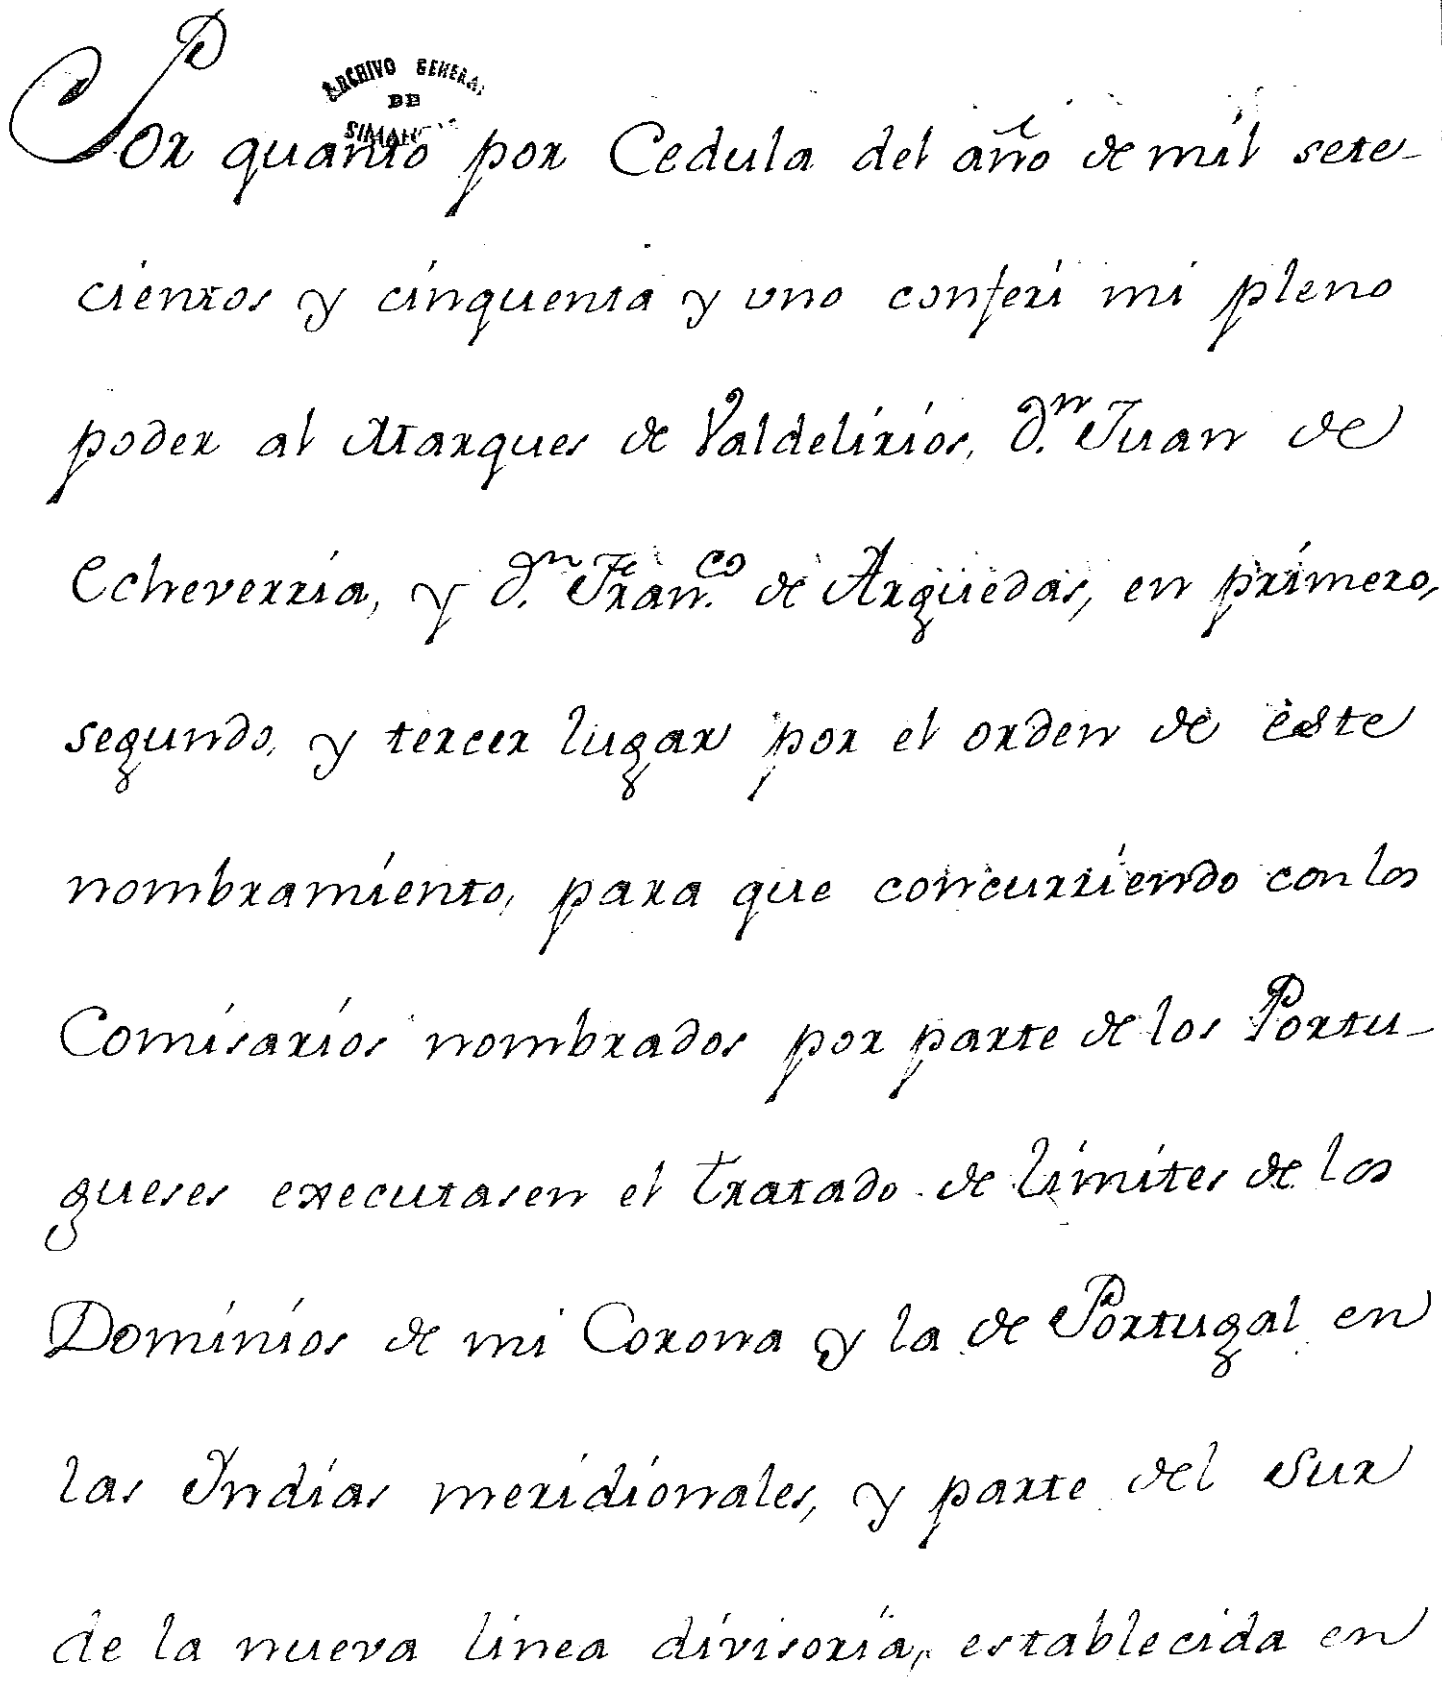 ARCHIVO GENERAL
DE
SIMANCAS
Por quanto por Cedula del año de mil sete-
cientos y cinquenta y uno conferi mi pleno
poder al Marques de Valdelirios, D.n Juan de
Echeverria, y D.n Fran.co de Arguedas, en primero,
segundo, y tercer lugar por el orden de este
nombramiento, para que concurriendo con los
Comisarios nombrados por parte de los Portu-
gueses executasen el tratado de limites de los
Dominios de mi Corona y la de Portugal en
las Indias meridionales, y parte del Sur
de la nueva linea divisoria, establecida en